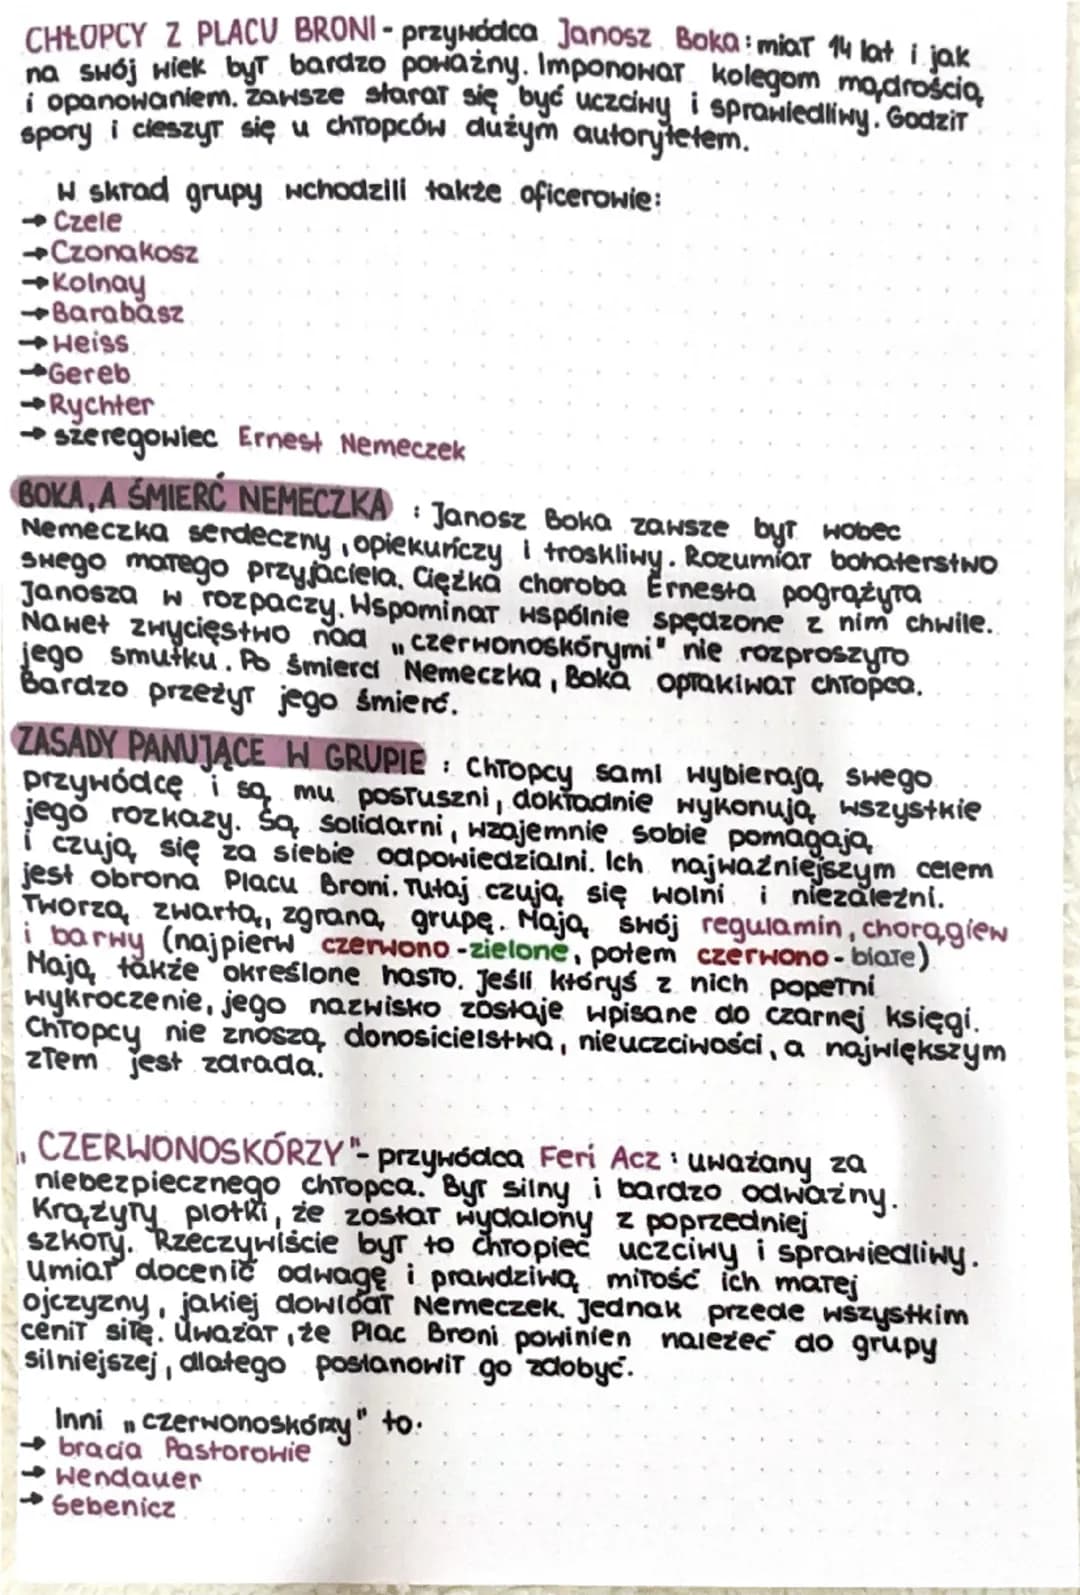 CHŁOPCY Z PLACU BRONI - przywódca Janosz Boka : miał 14 lat i jak
na swój wiek był bardzo poważny. Imponował kolegom mądrością
i opanowaniem. Zawsze starał się być uczciwy i sprawiedliwy. Godził
spory i cieszył się u chłopców dużym autorytetem.
W skład grupy wchodzili także oficerowie:
→ Czele
→ Czonakosz
→ Kolnay
→ Barabasz
→ Weiss
→ Gereb
→ Rychter
→ szeregowiec Ernest Nemeczek
BOKA, A ŚMIERĆ NEMECZKA : Janosz Boka zawsze był wobec
Nemeczka serdeczny, opiekuńczy i troskliwy. Rozumiał bohaterstwo
swego małego przyjaciela. Ciężka choroba Ernesta pogrążyła
Janosza w rozpaczy. Wspominał wspólnie spędzone z nim chwile.
Nawet zwycięstwo nad „czerwonoskórymi" nie rozproszyło
jego smutku. Po śmierci Nemeczka, Boka opłakiwał chłopca.
Bardzo przeżył jego śmierć.
ZASADY PANUJĄCE W GRUPIE : Chłopcy sami wybierają swego
przywódcę i są mu posłuszni, dokładnie wykonują wszystkie
jego rozkazy. Są solidarni, wzajemnie sobie pomagają
i czują się za siebie odpowiedzialni. Ich najważniejszym celem
jest obrona Placu Broni. Tutaj czują się wolni i niezależni.
Tworzą zwartą, zgraną grupę. Mają swój regulamin, chorągiew
i barwy (najpierw czerwono-zielone, potem czerwono-białe)
Mają także określone hasło. Jeśli któryś z nich popełni
wykroczenie, jego nazwisko zostaje wpisane do czarnej księgi.
Chłopcy nie znoszą donosicielstwa, nieuczciwości, a największym
złem jest zdrada.
„CZERWONOSKÓRZY" - przywódca Feri Acz : uważany za
niebezpiecznego chłopca. Był silny i bardzo odważny.
Krążyły plotki, że został wydalony z poprzedniej
szkoły. Rzeczywiście był to chłopiec uczciwy i sprawiedliwy.
Umiał docenić odwagę i prawdziwą miłość ich małej
ojczyzny, jakiej dowiódł Nemeczek. Jednak przede wszystkim
cenił siłę. Uważał, że Plac Broni powinien należeć do grupy
silniejszej, dlatego postanowił go zdobyć.
Inni „czerwonoskórzy" to:
→ bracia Pastorowie
→ Wendauer
→ Sebenicz